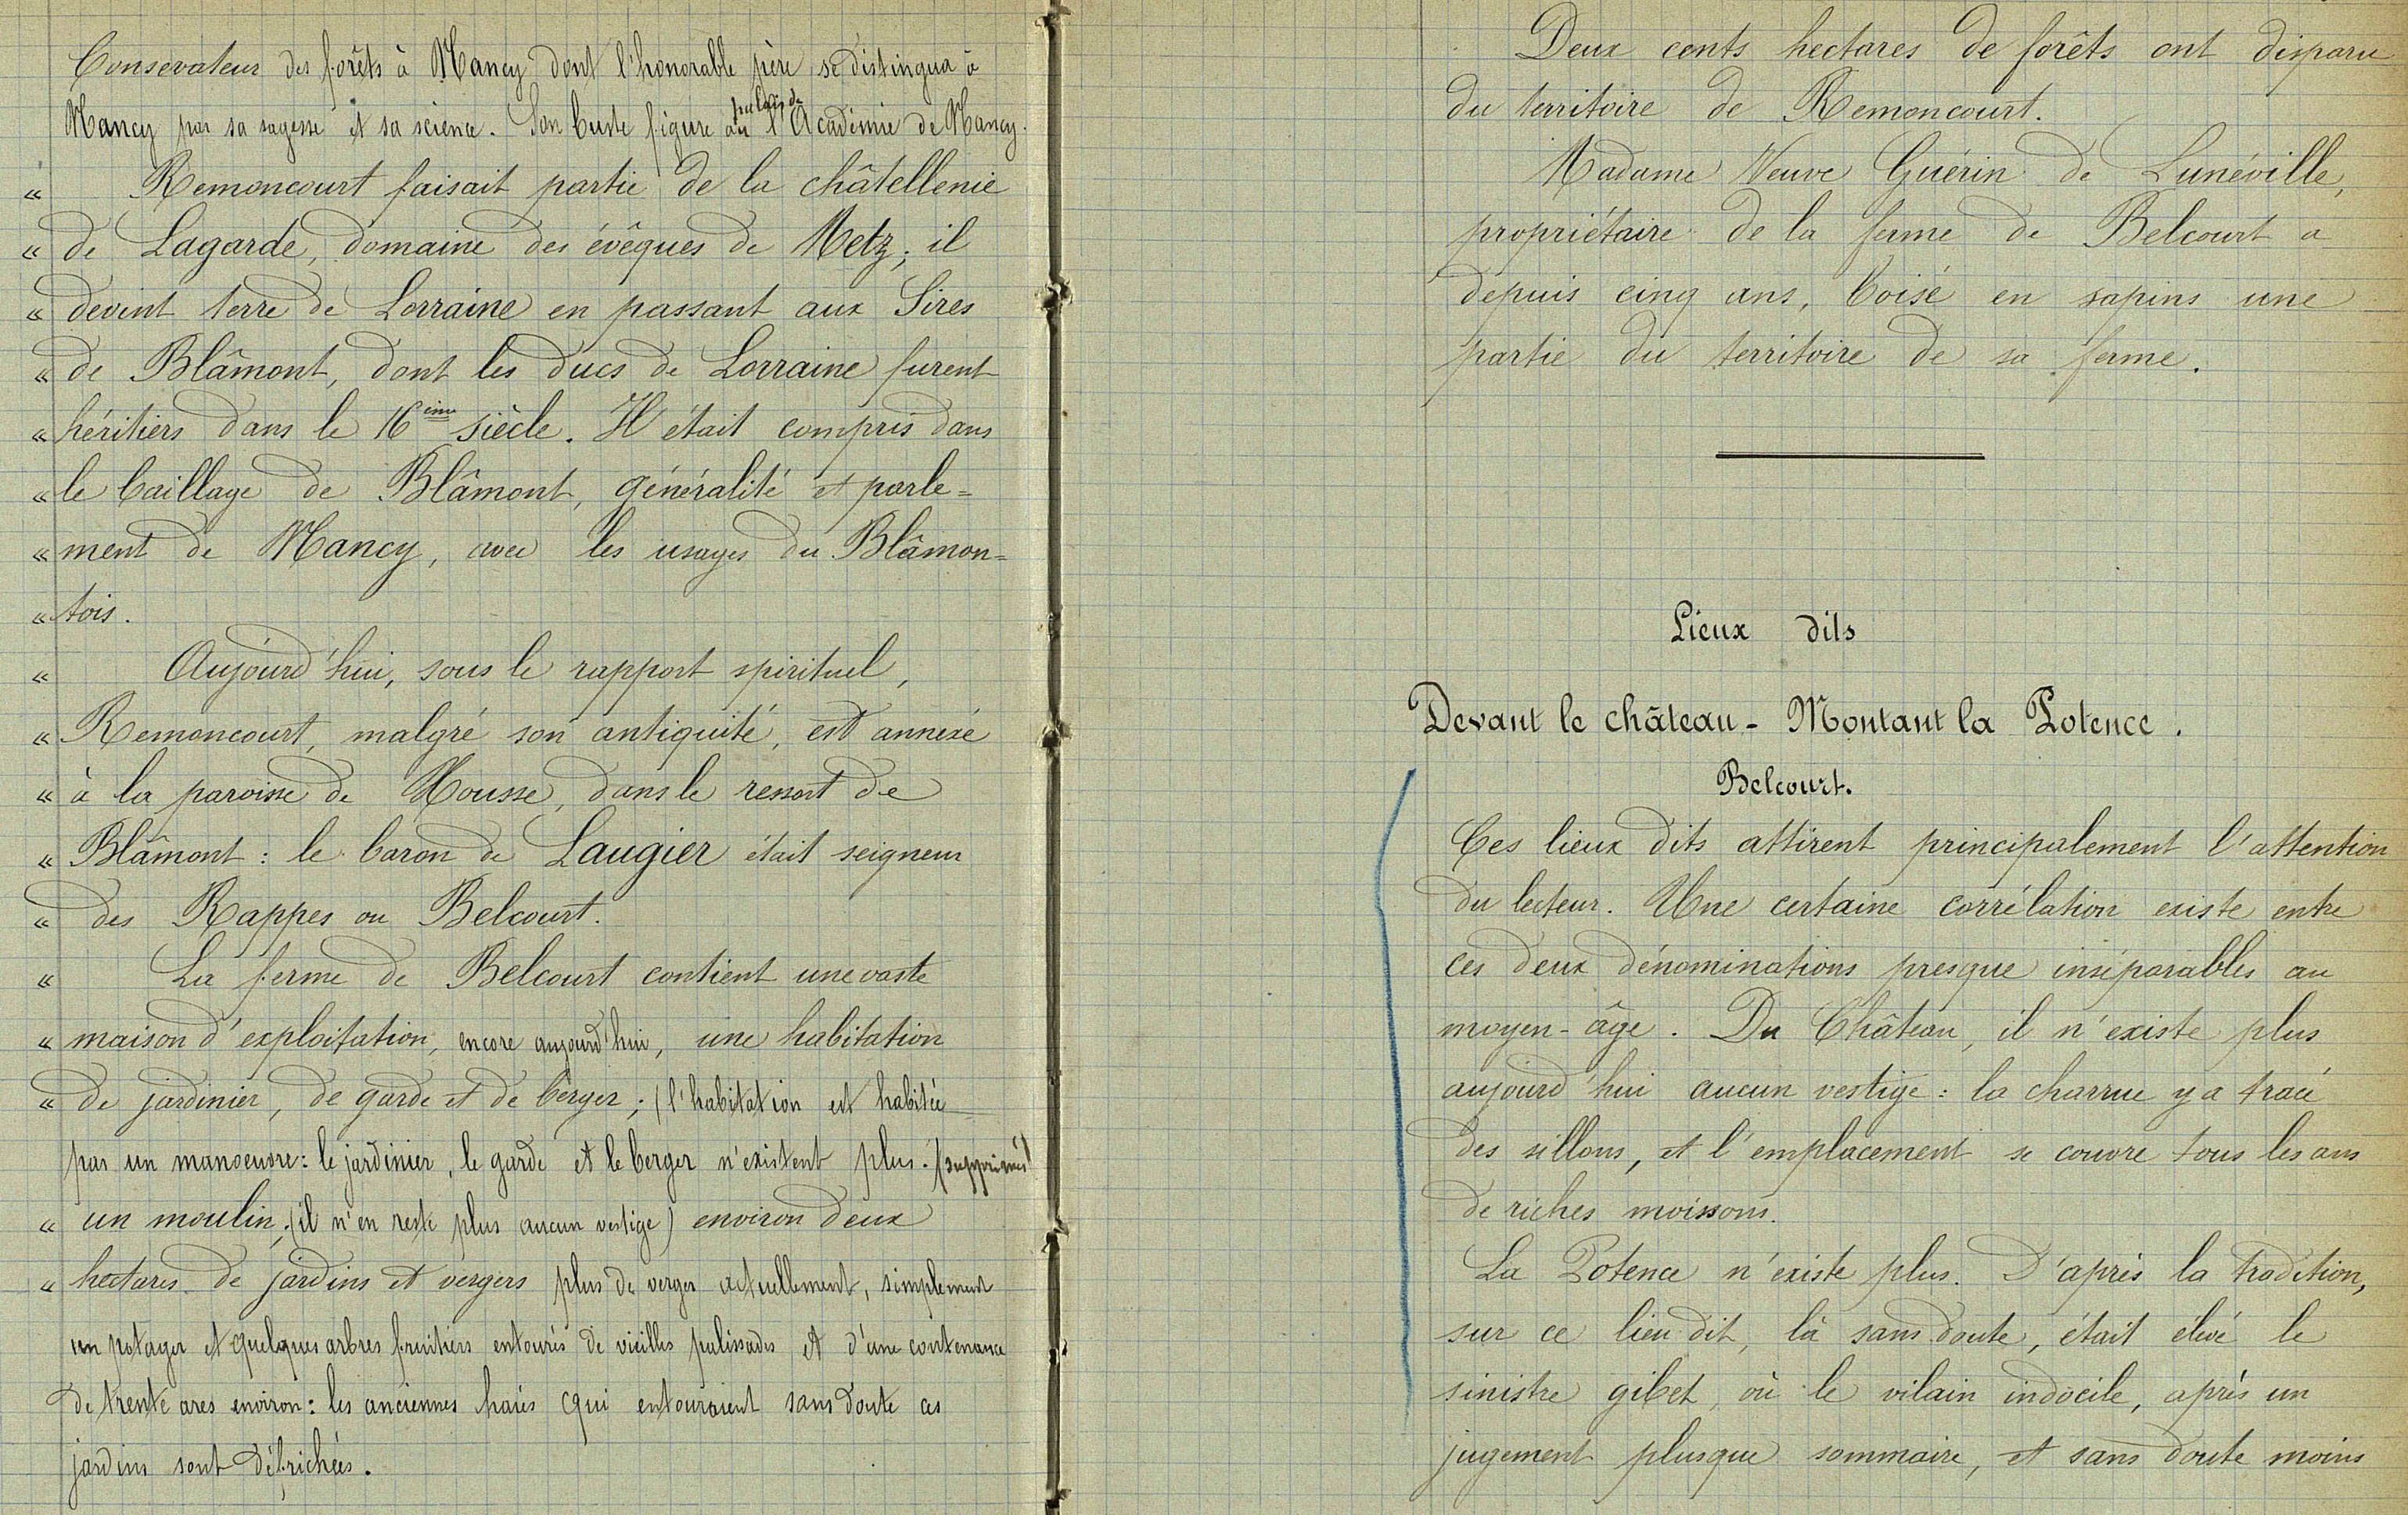 Consevateur des forêts à Nancy dont l'honorable père se distingua à
Nancy par sa sagesse et sa science. Son buste figure au palais de l'Académie de Nancy.
« Remoncourt faisait partie de la châtellenie
« de Lagarde, domaine des évêques de Metz; il
« devint terre de Lorraine en passant aux Sires
« de Blâmont, dont les ducs de Lorraine furent
« héritiers dans le 16ème siècle. Il était compris dans
« le baillage de Blâmont, généralité et parle=
« ment de Nancy, avec les usages du Blâmon=
« tois.
« Aujourd'hui, sous le rapport spirituel,
« Remoncourt, malgré son antiquité, est annexé
« à la paroisse de Xousse, dans le ressort de
« Blâmont : le baron de Laugier était seigneur
« des Rappes ou Belcourt.
« La ferme de Belcourt contient une vaste
« maison d'exploitation, encore aujourd'hui, une habitation
« de jardinier, de garde et de berger ; (l'habitation est habitée
par un manoeuvre : le jardinier, le garde et le berger n'existent plus. (supprimés)
« un moulin, (il n'en reste plus aucun vestige) environ deux
« hectares de jardins et vergers plus de verger actuellement, simplement
un potager et quelques arbres fruitiers entourés de vieilles palissades et d'une contenance
de trente ares environ : les anciennes haies qui entouraient sans doute ces
jardins sont défrichées.
Deux cents hectares de forêts ont disparu
du territoire de Remoncourt.
Madame Veuve Guérin de Lunéville,
propriétaire de la ferme de Belcourt a
depuis cinq ans, boisé en sapins une
partie du territoire de sa ferme.
Lieux dits
Devant le château - Montant la Potence.
Belcourt.
Ces lieux dits attirent principalement l'attention
du lecteur. Une certaine corrélation existe entre
ces deux dénominations presque inséparables au
moyen-âge. Du Château, il n'existe plus
aujourd'hui aucun vestige : la charrue y a tracé
des sillons, et l'emplacement se couvre tous les ans
de riches moissons.
La Potence n'existe plus. D'après la tradition,
sur ce lieu dit, là sans doute, était élevé le
sinistre gibet, où le vilain indocile, après un
jugement plusque sommaire, et sans doute moins